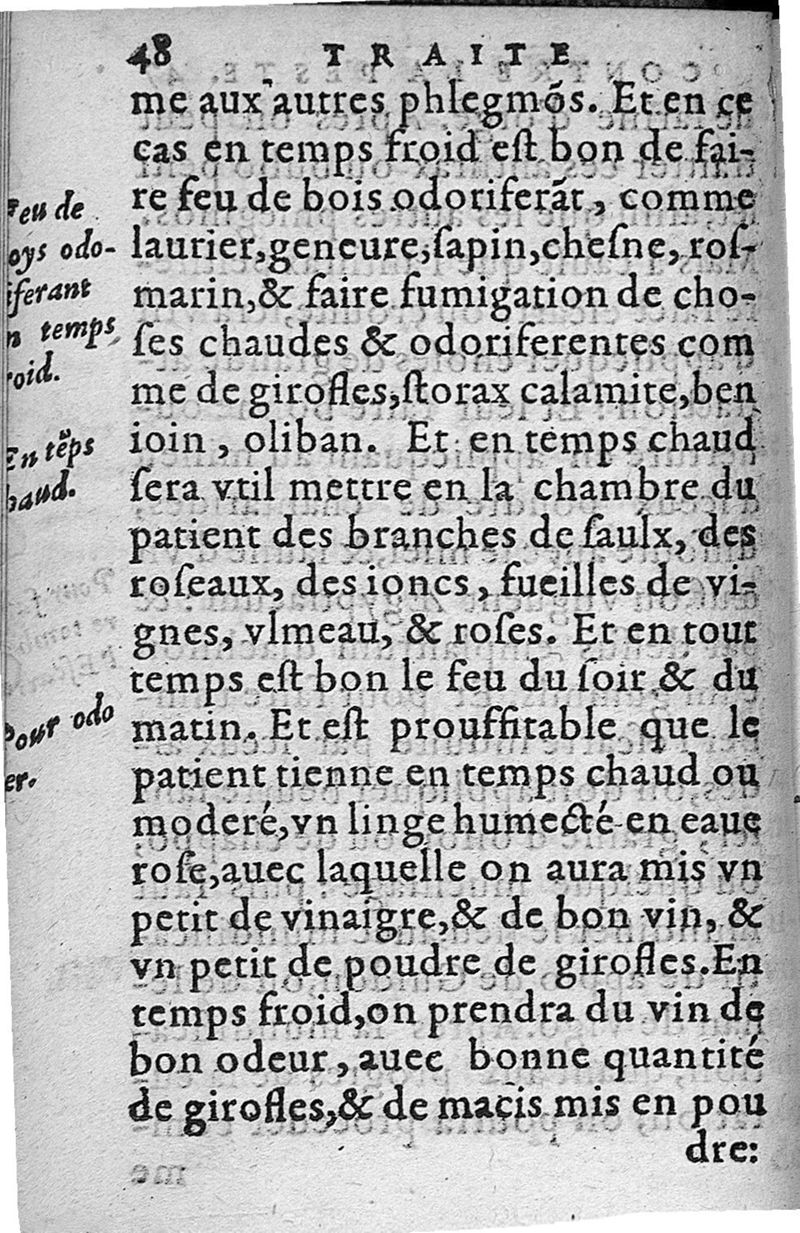 48 TRAITE
me aux autres phlegmõs. Et en ce
cas en temps froid eſt bon de fai-
re feu de bois odoriferãt, comme
laurier, geneure, ſapin, cheſne, roſ-
marin, & faire fumigation de cho-
ſes chaudes & odoriferentes com
me de girofles, ſtorax calamite, ben
ioin, oliban. Et en temps chaud
ſera vtil mettre en la chambre du
patient des branches de ſaulx, des
roſeaux, des ioncs, fueilles de vi-
gnes, vlmeau, & roſes. Et en tout
temps eſt bon le feu du ſoir & du
matin. Et eſt prouffitable que le
patient tienne en temps chaud ou
moderé, vn linge humecté en eaue
roſe, auec laquelle on aura mis vn
petit de vinaigre, & de bon vin, &
vn petit de poudre de girofles. En
temps froid, on prendra du vin de
bon odeur, auec bonne quantité
de girofles, & de macis mis en pou
dre:
eu de
oys odo-
iferant
n temps
roid.
En tẽps
haud.
Pour odo
er.